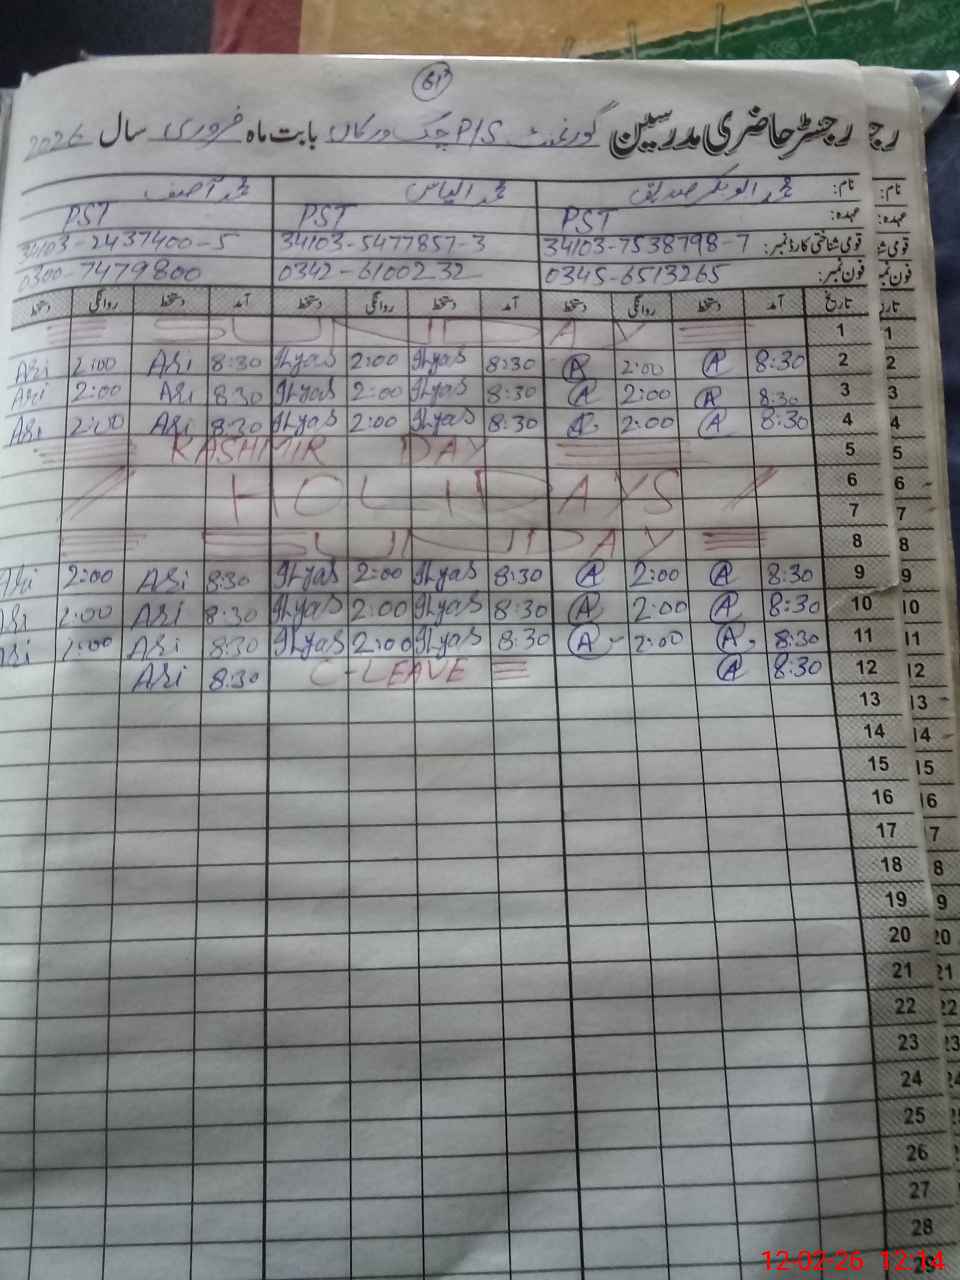 61
رجسٹر حاضری مدرسین گورنمنٹ P/S چک ورکاں بابت ماہ فروری سال 2026
نام: محمد ابوبکر صدیق محمد الیاس محمد آصف
عہدہ: PST PST PST
قومی شناختی کارڈ نمبر: 34103-7538798-7 34103-5477857-3 34103-2437400-5
فون نمبر: 0345-6513265 0342-6100232 0300-7479800
تاریخ آمد دستخط روانگی دستخط آمد دستخط روانگی دستخط آمد دستخط روانگی دستخط
1 SUNDAY
2 8:30 A 2:00 A 8:30 Ilyas 2:00 Ilyas 8:30 ASi 2:00 ASi
3 8:30 A 2:00 A 8:30 Ilyas 2:00 Ilyas 8:30 ASi 2:00 ASi
4 8:30 A 2:00 A 8:30 Ilyas 2:00 Ilyas 8:30 ASi 2:00 ASi
5 KASHMIR DAY
6 HOLIDAYS
7
8 SUNDAY
9 8:30 A 2:00 A 8:30 Ilyas 2:00 Ilyas 8:30 ASi 2:00 ASi
10 8:30 A 2:00 A 8:30 Ilyas 2:00 Ilyas 8:30 ASi 2:00 ASi
11 8:30 A 2:00 A 8:30 Ilyas 2:00 Ilyas 8:30 ASi 2:00 ASi
12 8:30 A C-LEAVE 8:30 ASi
13
14
15
16
17
18
19
20
21
22
23
24
25
26
27
28
29
12-02-26 12:14